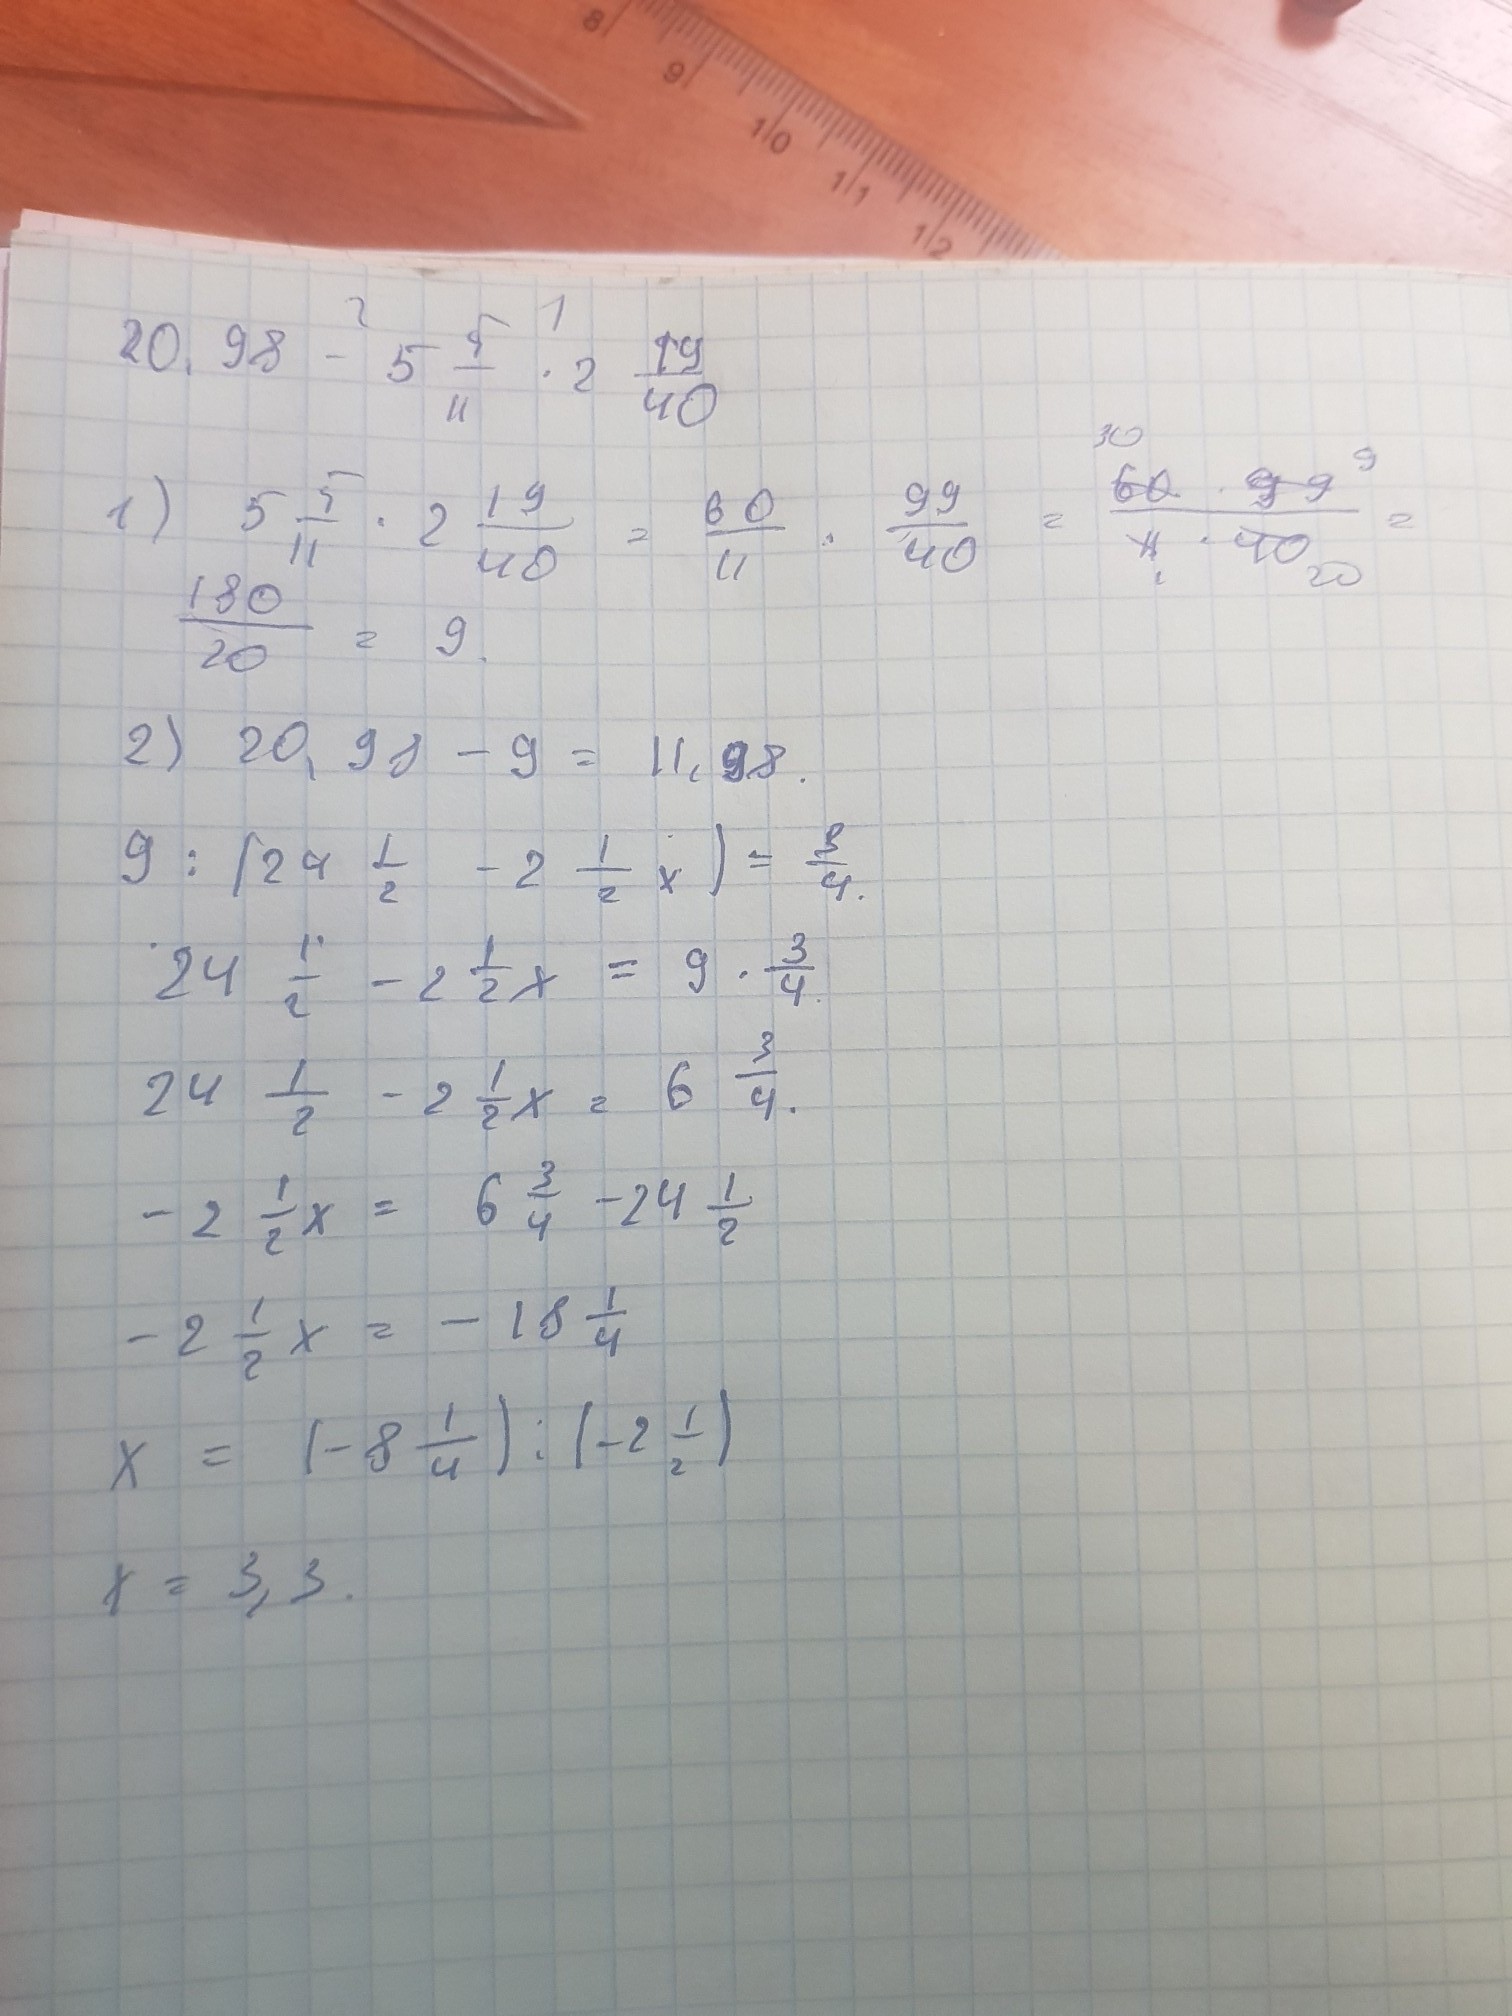 8 9 10 11 12
20,98 - 5 5/11 · 2 19/40
1) 5 5/11 · 2 19/40 = 60/11 · 99/40 = 60 · 99/11 · 40 =
30 9 1 20
180/20 = 9.
2) 20,98 - 9 = 11,98.
9 : (24 1/2 - 2 1/2 x) = 3/4.
24 1/2 - 2 1/2 x = 9 · 3/4.
24 1/2 - 2 1/2 x = 6 3/4.
- 2 1/2 x = 6 3/4 - 24 1/2
- 2 1/2 x = - 18 1/4
x = (- 8 1/4) : (- 2 1/2)
x = 3,3.